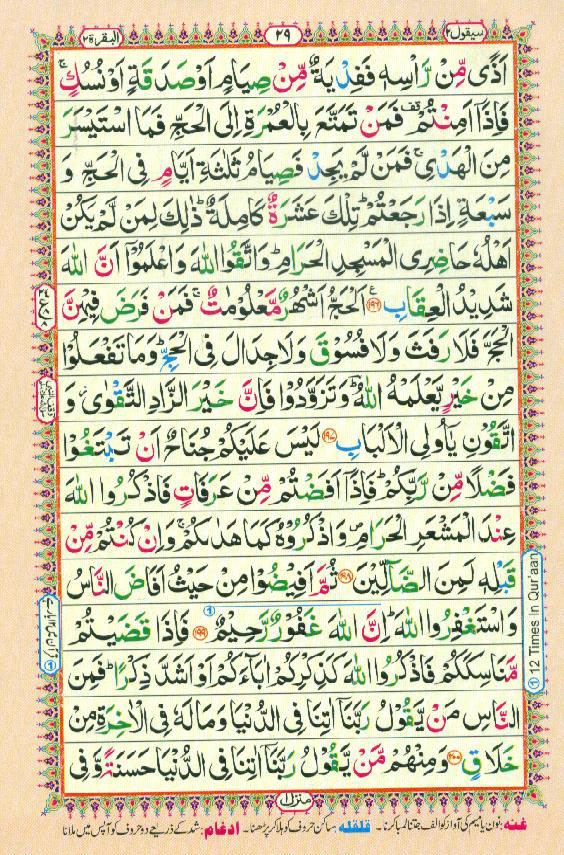 البقرة ۲
۲۹
سیقول ۲
اَذًى مِّنْ رَّاْسِهٖ فَفِدْيَةٌ مِّنْ صِيَامٍ اَوْ صَدَقَةٍ اَوْ نُسُكٍ ۚ
فَاِذَاۤ اَمِنْتُمْ ۥ وقفة فَمَنْ تَمَتَّعَ بِالْعُمْرَةِ اِلَى الْحَجِّ فَمَا اسْتَيْسَرَ
مِنَ الْهَدْيِ ۚ فَمَنْ لَّمْ يَجِدْ فَصِيَامُ ثَلٰثَةِ اَيَّامٍ فِى الْحَجِّ وَ
سَبْعَةٍ اِذَا رَجَعْتُمْ ؕ تِلْكَ عَشَرَةٌ كَامِلَةٌ ؕ ذٰلِكَ لِمَنْ لَّمْ يَكُنْ
اَهْلُهٗ حَاضِرِى الْمَسْجِدِ الْحَرَامِ ؕ وَاتَّقُوا اللّٰهَ وَاعْلَمُوْۤا اَنَّ اللّٰهَ
شَدِيْدُ الْعِقَابِ ﴿۱۹۶﴾ ع اَلْحَجُّ اَشْهُرٌ مَّعْلُوْمٰتٌ ۚ فَمَنْ فَرَضَ فِيْهِنَّ
الْحَجَّ فَلَا رَفَثَ وَلَا فُسُوْقَ وَلَا جِدَالَ فِى الْحَجِّ ؕ وَمَا تَفْعَلُوْا
مِنْ خَيْرٍ يَّعْلَمْهُ اللّٰهُ ؔؕ وَتَزَوَّدُوْا فَاِنَّ خَيْرَ الزَّادِ التَّقْوٰى ۫ وَ
اتَّقُوْنِ يٰۤاُولِى الْاَلْبَابِ ﴿۱۹۷﴾ لَيْسَ عَلَيْكُمْ جُنَاحٌ اَنْ تَبْتَغُوْا
فَضْلًا مِّنْ رَّبِّكُمْ ؕ فَاِذَاۤ اَفَضْتُمْ مِّنْ عَرَفَاتٍ فَاذْكُرُوا اللّٰهَ
عِنْدَ الْمَشْعَرِ الْحَرَامِ ۪ وَاذْكُرُوْهُ كَمَا هَدٰىكُمْ ۚ وَاِنْ كُنْتُمْ مِّنْ
قَبْلِهٖ لَمِنَ الضَّآلِّيْنَ ﴿۱۹۸﴾ ثُمَّ اَفِيْضُوْا مِنْ حَيْثُ اَفَاضَ النَّاسُ
وَاسْتَغْفِرُوا اللّٰهَ ؕ اِنَّ اللّٰهَ غَفُوْرٌ رَّحِيْمٌ ﴿۱۹۹﴾ فَاِذَا قَضَيْتُمْ
مَّنَاسِكَكُمْ فَاذْكُرُوا اللّٰهَ كَذِكْرِكُمْ اٰبَآءَكُمْ اَوْ اَشَدَّ ذِكْرًا ؕ فَمِنَ
النَّاسِ مَنْ يَّقُوْلُ رَبَّنَاۤ اٰتِنَا فِى الدُّنْيَا وَمَا لَهٗ فِى الْاٰخِرَةِ مِنْ
خَلَاقٍ ﴿۲۰۰﴾ وَمِنْهُمْ مَّنْ يَّقُوْلُ رَبَّنَاۤ اٰتِنَا فِى الدُّنْيَا حَسَنَةً وَّ فِى
① 12 Times In Qur'aan
منزل ۱
غنه: نون یا میم کی آواز کو الف جتنا لمبا کرنا۔ قلقله: ساکن حروف کو ہلا کر پڑھنا۔ ادغام: شد کے ذریعے دو حروف کو آپس میں ملانا